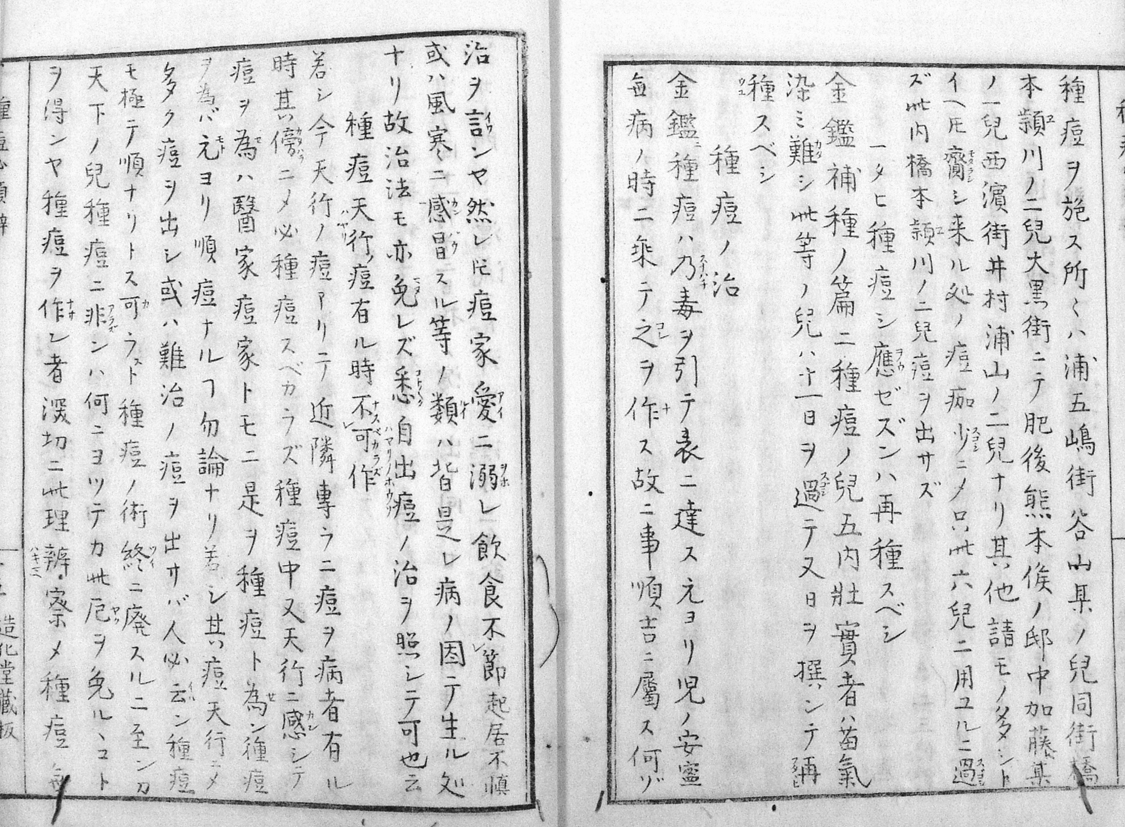 種痘ヲ施ス所〻ハ浦五嶋街谷山某ノ兒同街橋
本頴川ノ二兒大黒街ニテ肥後熊本侯ノ邸中加藤某
ノ一兒西濱街井村浦山ノ二兒ナリ其他請モノ多シト
イヘ𪜈齎シ来ル処ノ痘痂少ニ〆只此六兒ニ用ユルニ過
ズ此内橋本頴川ノ二兒痘ヲ出サズ
一タヒ種痘シ應ゼズンハ再種スベシ
金鑑補種ノ篇ニ種痘ノ兒五内壯實者ハ苗氣
染ミ難シ此等ノ兒ハ十一日ヲ過テ又日ヲ撰ンテ再
種スベシ
種痘ノ治
金鑑ニ種痘ハ乃毒ヲ引テ表ニ達ス元ヨリ児ノ安寧
無病ノ時ニ乗テ之ヲ作ス故ニ事順吉ニ屬ス何ゾ
治ヲ言ンヤ然レ𪜈痘家愛ニ溺レ飲食不節起居不慎
或ハ風寒ニ感冒スル等ノ類ハ皆是レ病ノ因テ生ル処
ナリ故治法モ亦免レズ悉自出痘ノ治ヲ照シテ可也云
種痘天行痘有ル時不可作
若シ今天行ノ痘アリテ近隣專ラニ痘ヲ病者有ル
時其傍ニ〆必種痘スベカラズ種痘中又天行ニ感シテ
痘ヲ為ハ醫家痘家トモニ是ヲ種痘ト為ン種痘
ヲ為バ元ヨリ順痘ナルヿ勿論ナリ若シ其痘天行ニ〆
多ク痘ヲ出シ或ハ難治ノ痘ヲ出サバ人必云ン種痘
モ極テ順ナリトス可ラズト種痘ノ術終ニ廃スルニ至ン刀
天下ノ兒種痘ニ非ンハ何ニヨツテカ此厄ヲ免ルヽコト
ヲ得ンヤ種痘ヲ作ン者深切ニ此理辨察〆種痘
造化堂藏板